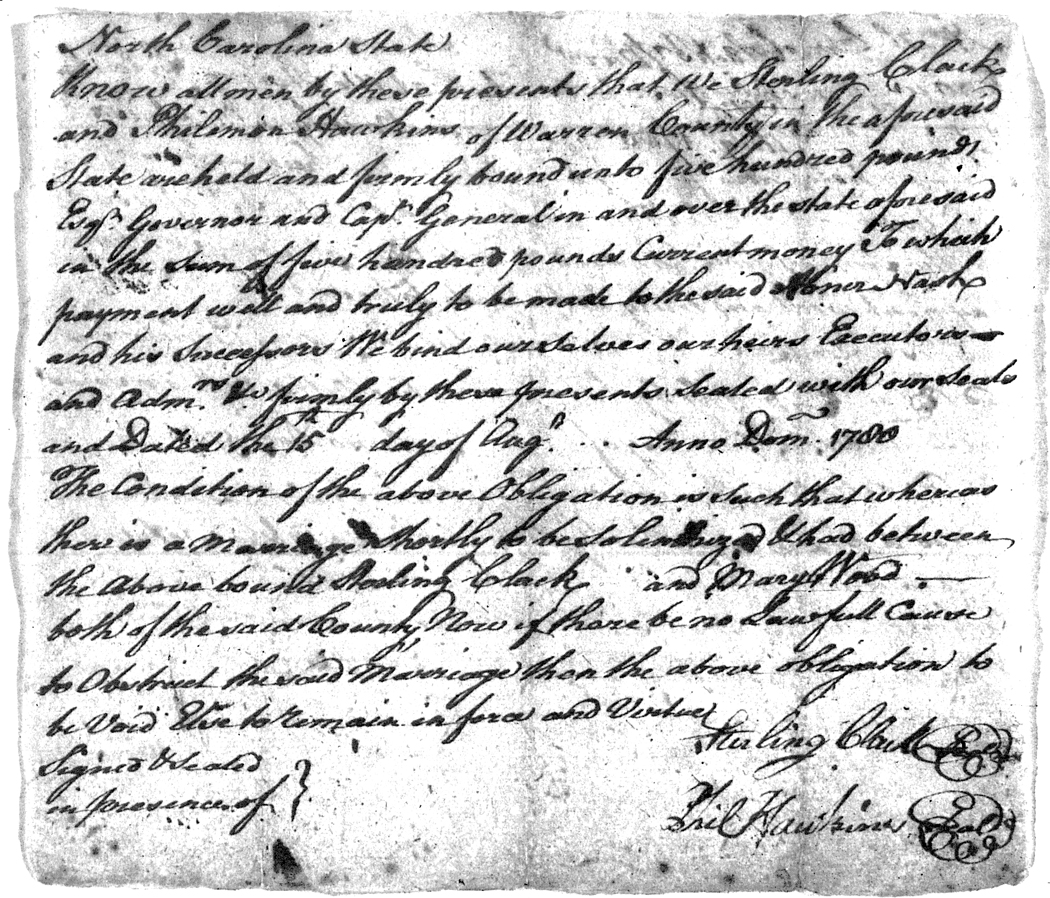 North Carolina State
Know all men by these presents that We Sterling Clack
and Philemon Hawkins of Warren County in the aforesaid
State are held and firmly bound unto five hundred pounds
Esqr. Governor and Capt. General in and over the state aforesaid
in the sum of five hundred pounds Current money To which
payment well and truly to be made to the said Abner Nash
and his Successors We bind ourselves our heirs Executors
and Admrs. &c firmly by these presents Sealed with our Seals
and Dated the 15th day of Augt. .. Anno Dom. 1780
The Condition of the above Obligation is such that whereas
there is a Marriage shortly to be Solemnized & had between
the Above bound Sterling Clack and Mary Wood
both of the said County Now if there be no Lawfull Cause
to Obstruct the said Marriage then the above obligation to
be Void Else to remain in force and Virtue
Sterling Clack Seal
Signed & Sealed
in presence of }
Phil Hawkins Seal